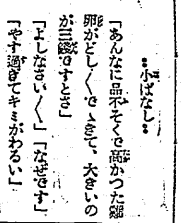 小ばなし
「あんなに品不そくで高かつた雞
卵がどし〳〵でゝきて、大きいの
が三錢ですとさ」
「よしなさい〳〵」「なぜです」
「やす過ぎてキミがわるい」